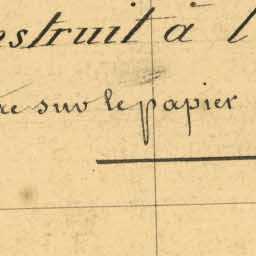 estruit à l
re sur le papier